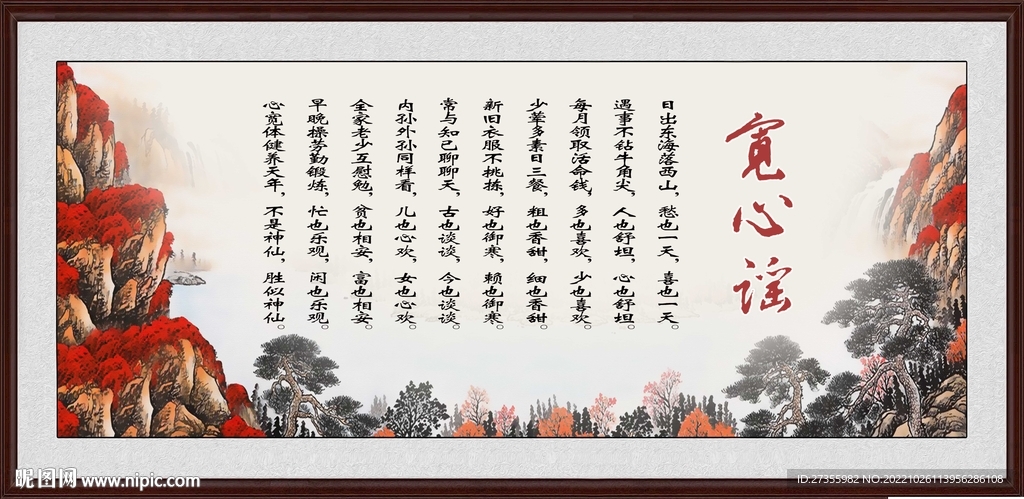 宽心谣
日出东海落西山，愁也一天，喜也一天。
遇事不钻牛角尖，人也舒坦，心也舒坦。
每月领取活命钱，多也喜欢，少也喜欢。
少荤多素日三餐，粗也香甜，细也香甜。
新旧衣服不挑拣，好也御寒，赖也御寒。
常与知己聊聊天，古也谈谈，今也谈谈。
内孙外孙同样看，儿也心欢，女也心欢。
全家老少互慰勉，贫也相安，富也相安。
早晚操劳勤锻炼，忙也乐观，闲也乐观。
心宽体健养天年，不是神仙，胜似神仙。
昵图网 www.nipic.com
ID:27355982 NO:20221026113956286108